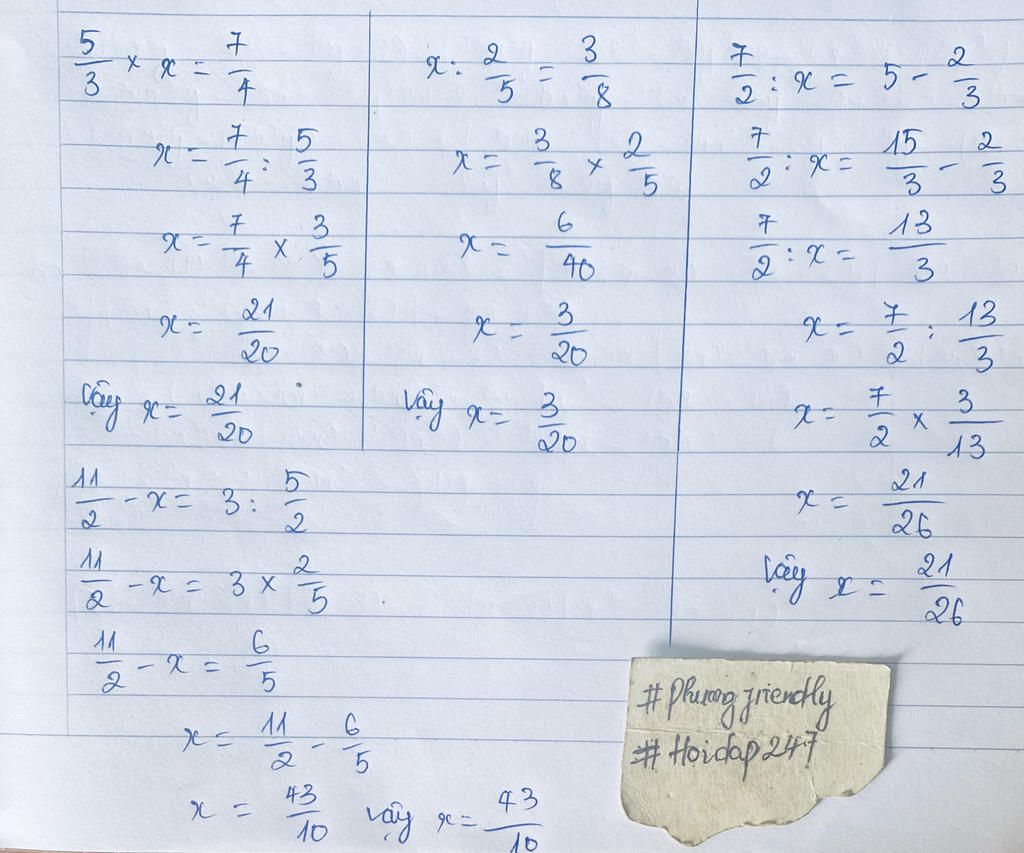 5/3 × x = 7/4
x = 7/4 : 5/3
x = 7/4 × 3/5
x = 21/20
Vậy x = 21/20
x : 2/5 = 3/8
x = 3/8 × 2/5
x = 6/40
x = 3/20
Vậy x = 3/20
7/2 : x = 5 - 2/3
7/2 : x = 15/3 - 2/3
7/2 : x = 13/3
x = 7/2 : 13/3
x = 7/2 × 3/13
x = 21/26
Vậy x = 21/26
11/2 - x = 3 : 5/2
11/2 - x = 3 × 2/5
11/2 - x = 6/5
x = 11/2 - 6/5
x = 43/10 Vậy x = 43/10
# Phuong friendly
# Hoidap247